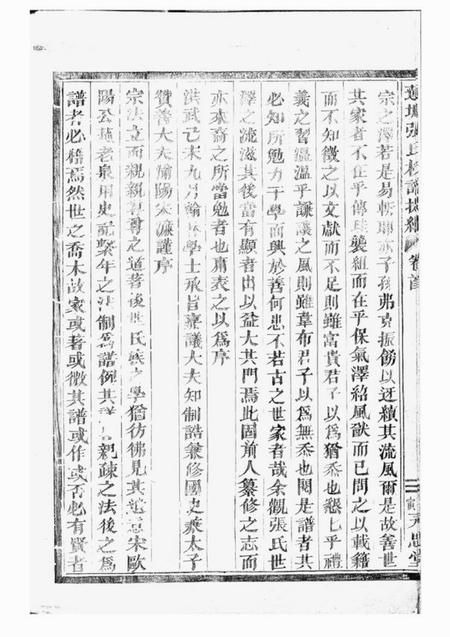 張氏校譜 卷首
宗之澤若是易斬耶亦子孫弗克振飭以迓續其流風爾是故善世
其家者不在乎傳珪襲組而在乎保氣澤紹風猷而已問之以載籍
而不知徵之以文獻而不足則雖富貴君子以爲猶忝也懇乎禮
義之習溫溫乎謙讓之風則雖韋布君子以爲無忝也閱是譜者其
必知所勉力于學而興於善何患不若古之世家者哉余觀張氏世
澤之流滋其後當有顯者出以益大其門焉此固前人纂修之志而
亦來裔之所當勉者也庸表之以爲序
洪武己未九月翰林學士承旨嘉議大夫知制誥兼修國史兼太子
贊善大夫渝陽宋濂謹序
宗法立而親親尊尊之道著後世氏族之學猶彷彿見其遺意宋歐
陽公與老泉用史記繫年之法制爲譜例其詳親疎之法後之爲
譜者必藉焉然世之喬木故家或著或微其譜或作或否必有賢者
忠堂